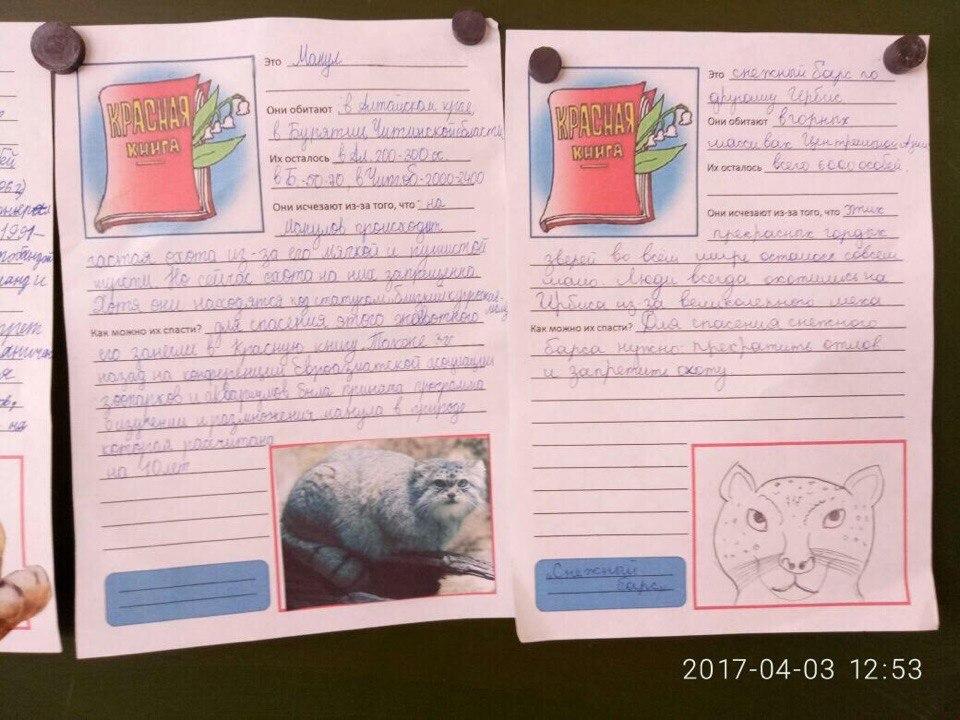 ей
1991-
на
КРАСНАЯ
КНИГА
Это Манул
Они обитают в Алтайском крае,
в Бурятии, Читинской области,
Их осталось в Ал. 200-300 х.
в Б.-50-70 в Чит об-2000-2400
Они исчезают из-за того, что на
манулов происходит
частая охота из-за его мягкой и пушистой
шерсти. Но сейчас охота на них запрещена
Хотя они находятся под статусом
Как можно их спасти? для спасения этого животного
его занесли в Красную книгу. Также
назад на конференции Евроазиатской асоциации
зоопарков и аквариумов была принята программа
изучении и размножения манула в природе
которая расчитана
на 10 лет
КРАСНАЯ
КНИГА
Это снежный барс по
другому Ирбис
Они обитают в горных
массивах Центральной Азии
Их осталось всего 6000 особей.
Они исчезают из-за того, что Этих
прекрасных гордых
зверей во всём мире осталось совсем
мало. Люди всегда охотились на
Ирбиса из-за великолепного меха
Как можно их спасти? Для спасения снежного
барса нужно прекратить отлов
и запретить охоту.
«Снежный
барс»
2017-04-03 12:53